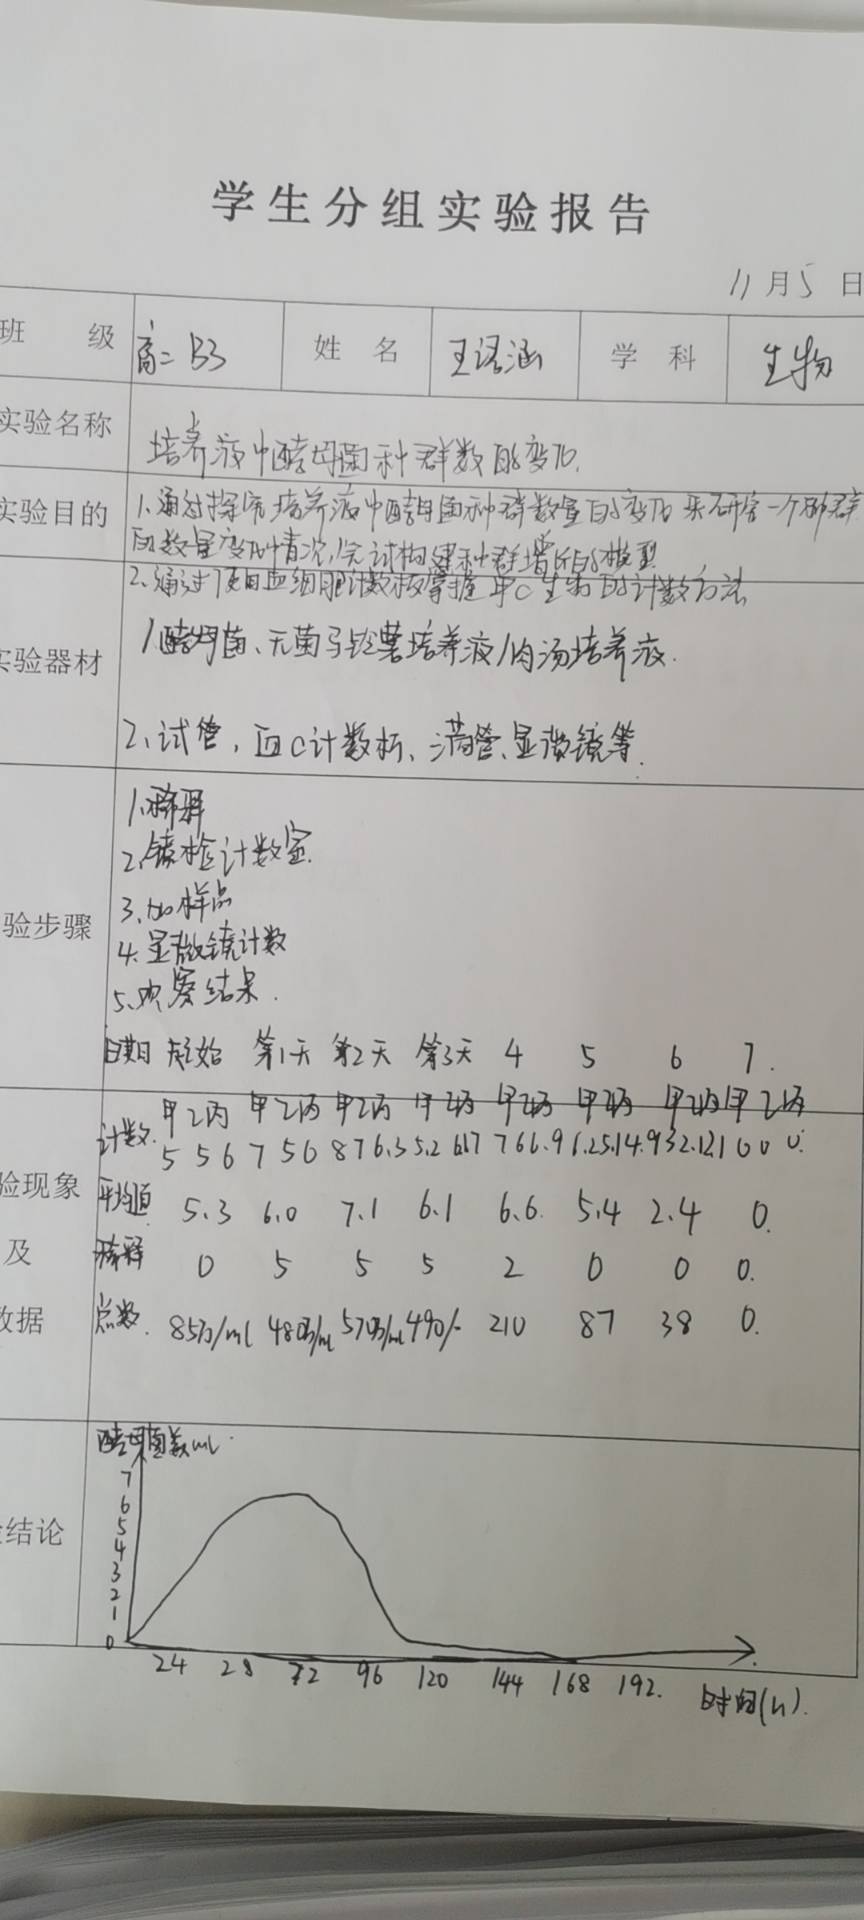 学生分组实验报告
11月5日
班 级 高二 B3 姓 名 王诺涵 学 科 生物
实验名称 培养液中酵母菌种群数的变化.
实验目的 1.通过探究培养液中酵母菌种群数量的变化来研究一个种群
的数量变化情况,尝试构建种群增长的模型
2.通过使用血细胞计数板掌握单C生物的计数方法
实验器材 1.酵母菌、无菌马铃薯培养液/肉汤培养液.
2.试管,血C计数板、滴管、显微镜等.
验步骤 1.稀释
2.镜检计数室.
3.加样品
4.显微镜计数
5.观察结果.
日期 起始 第1天 第2天 第3天 4 5 6 7.
甲乙丙 甲乙丙 甲乙丙 甲乙丙 甲乙丙 甲乙丙 甲乙丙 甲乙丙
计数. 5 5 6 7 5 6 8 7 6.3 5.2 6 7 7 6 6.9 6.2 5.1 4.9 3 2.1 2.1 0 0 0.
验现象
平均值 5.3 6.0 7.1 6.1 6.6 5.4 2.4 0.
及
稀释 0 5 5 5 2 0 0 0.
数据
总数. 85万/ml 480万/ml 570万/ml 490/- 210 87 38 0.
结论
酵母菌数ml.
7
6
5
4
3
2
1
0
24 28 72 96 120 144 168 192. 时间(h).